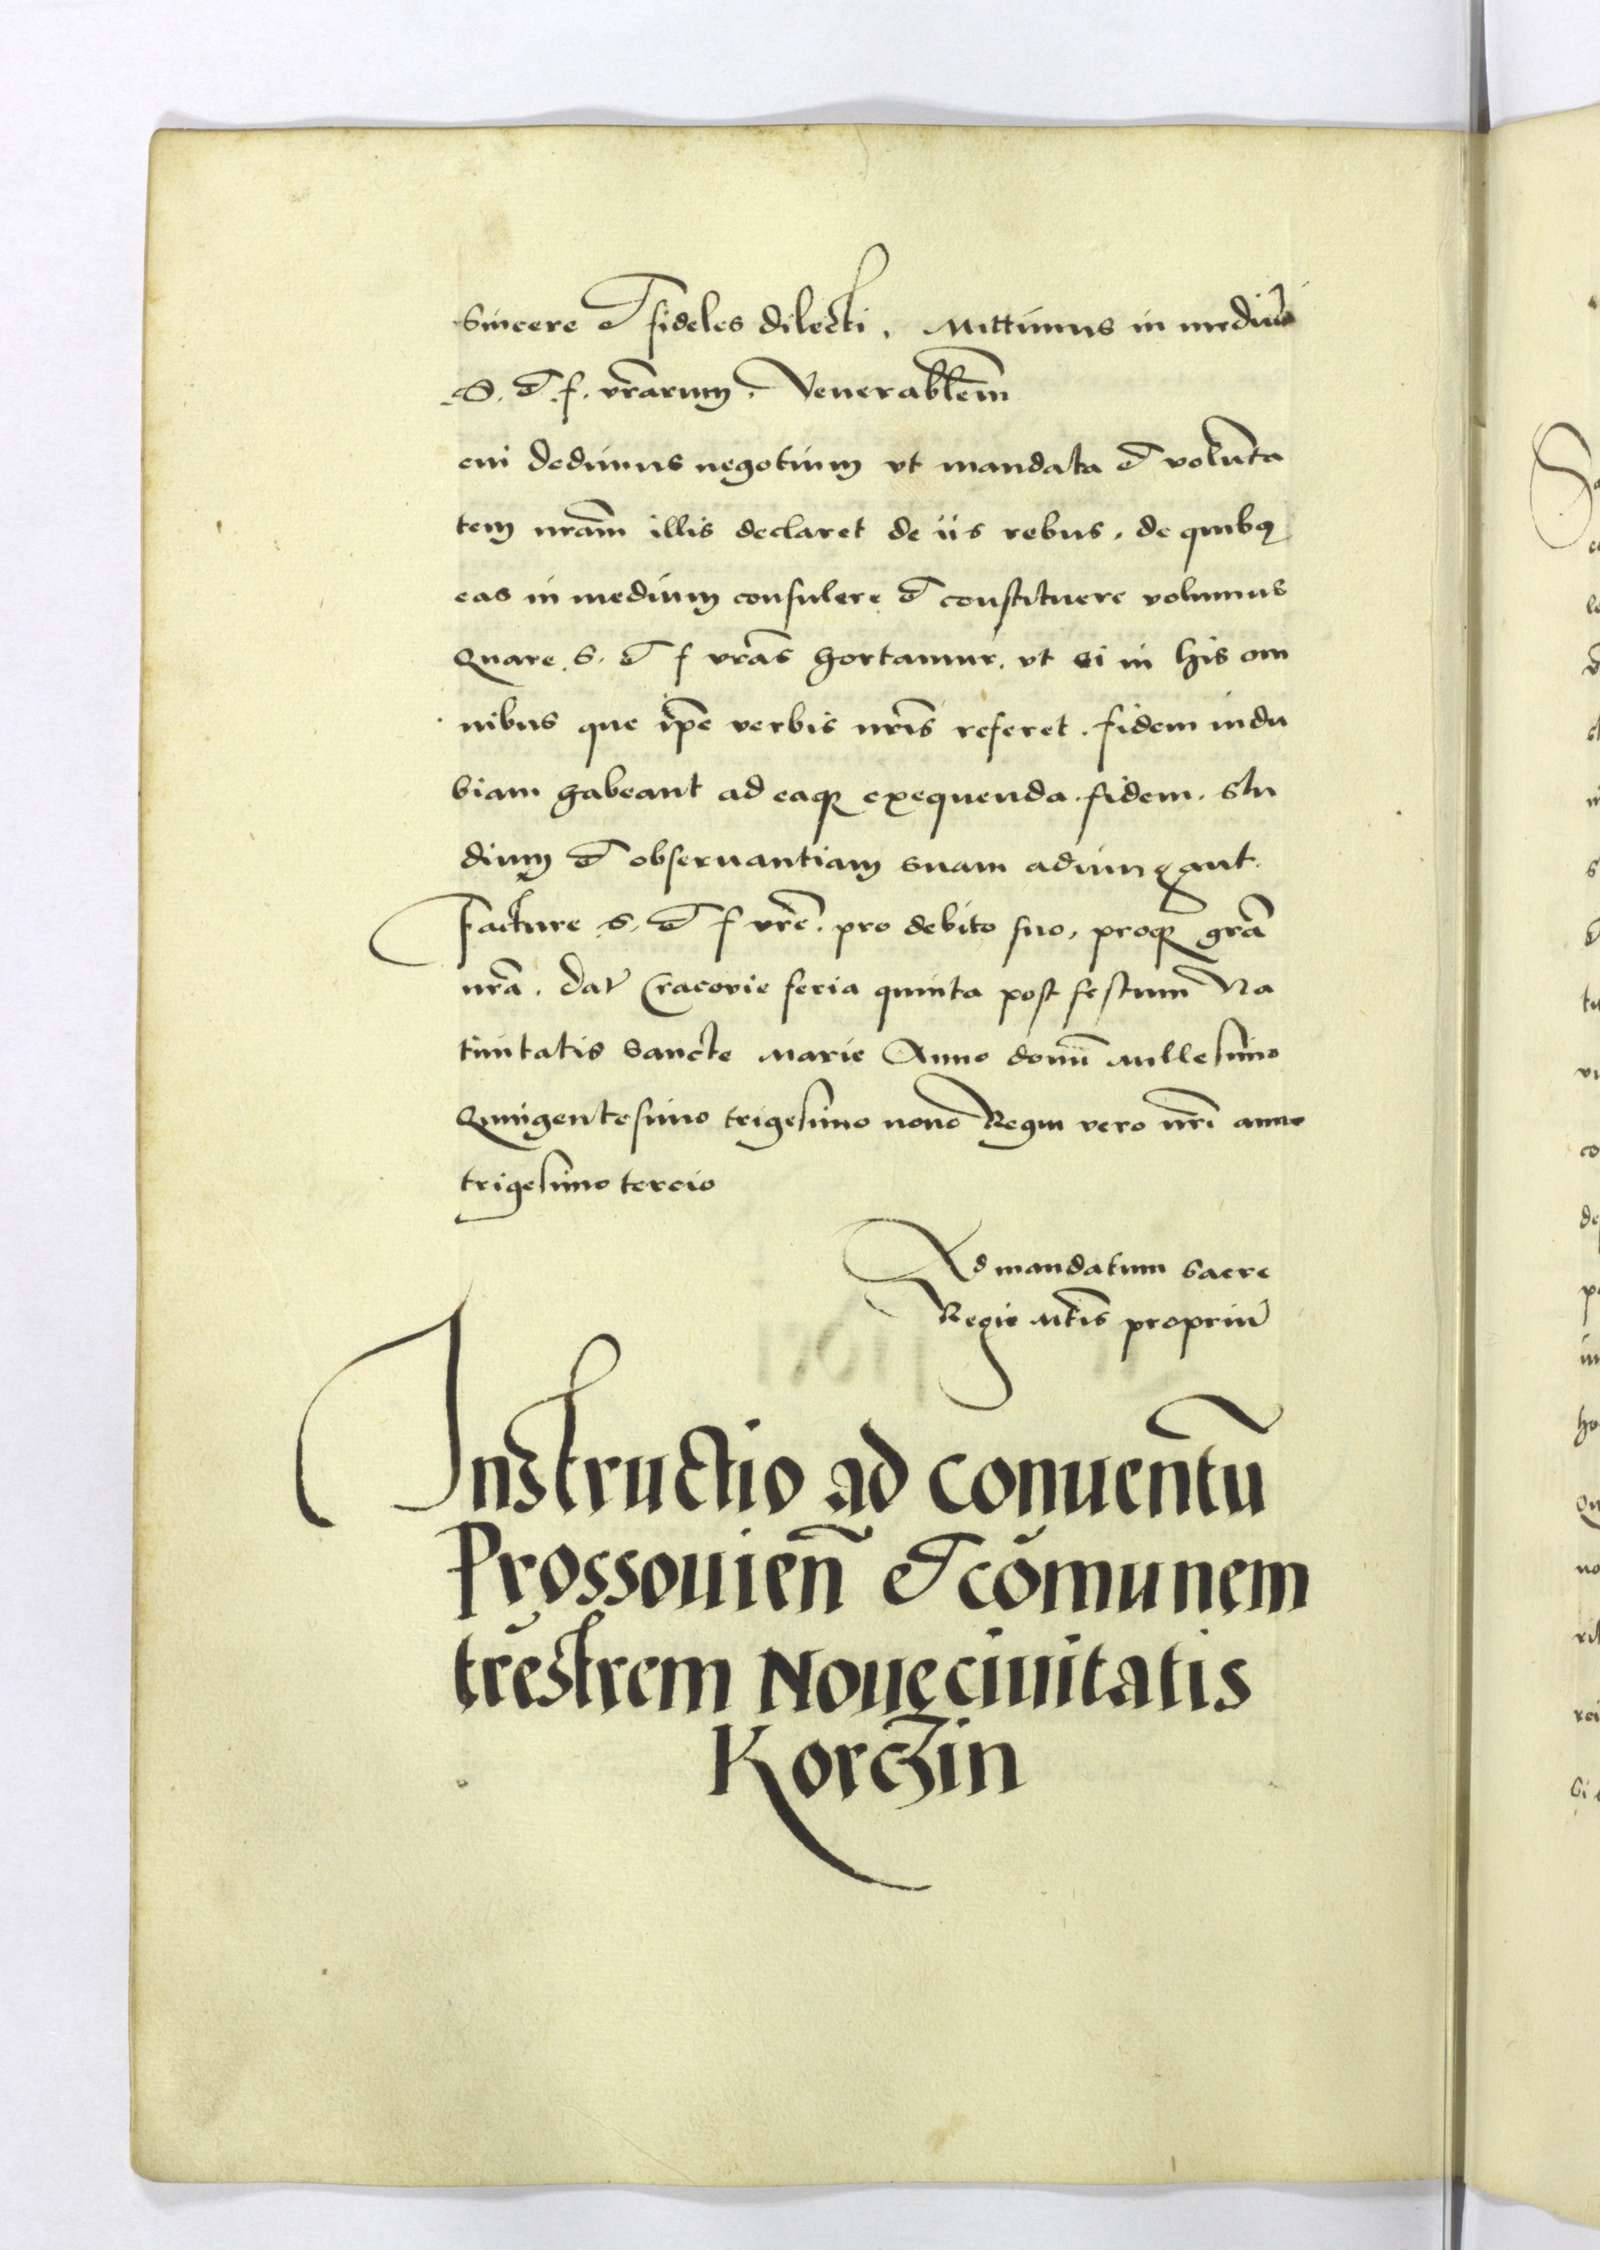 Sincere et fideles dilecti. Mittimus in mediũ
S. et f. vrãrum. Venerabl̃em
cui dedimus negotium vt mandata et volũta
tem nrãm illis declaret de iis rebus. de quibq
eas in medium consulere et constituere volumus
Quare S. et f vrãs hortamur. vt ei in his om
nibus que ip̃e verbis nrĩs referet. fidem indu
biam habeant ad eaqz exequenda. fidem. stu
dium et obseruantiam suam adiungant.
Facture S. et f vrẽ. pro debito suo, proqz grã
nrã. Dat̃ Cracovie feria quinta post festum Na
tiuitatis Sancte Marie Anno domĩ Millesimo
Quingentesimo trigesimo nono Regni vero nrĩ anno
trigesimo tercio
Ad mandatum Sacre
Regie Mt̃is propriũ
Instructio ad conuentũ
Prossouieñ et cõmunem
trẽstrem Noue ciuitatis
Korczin